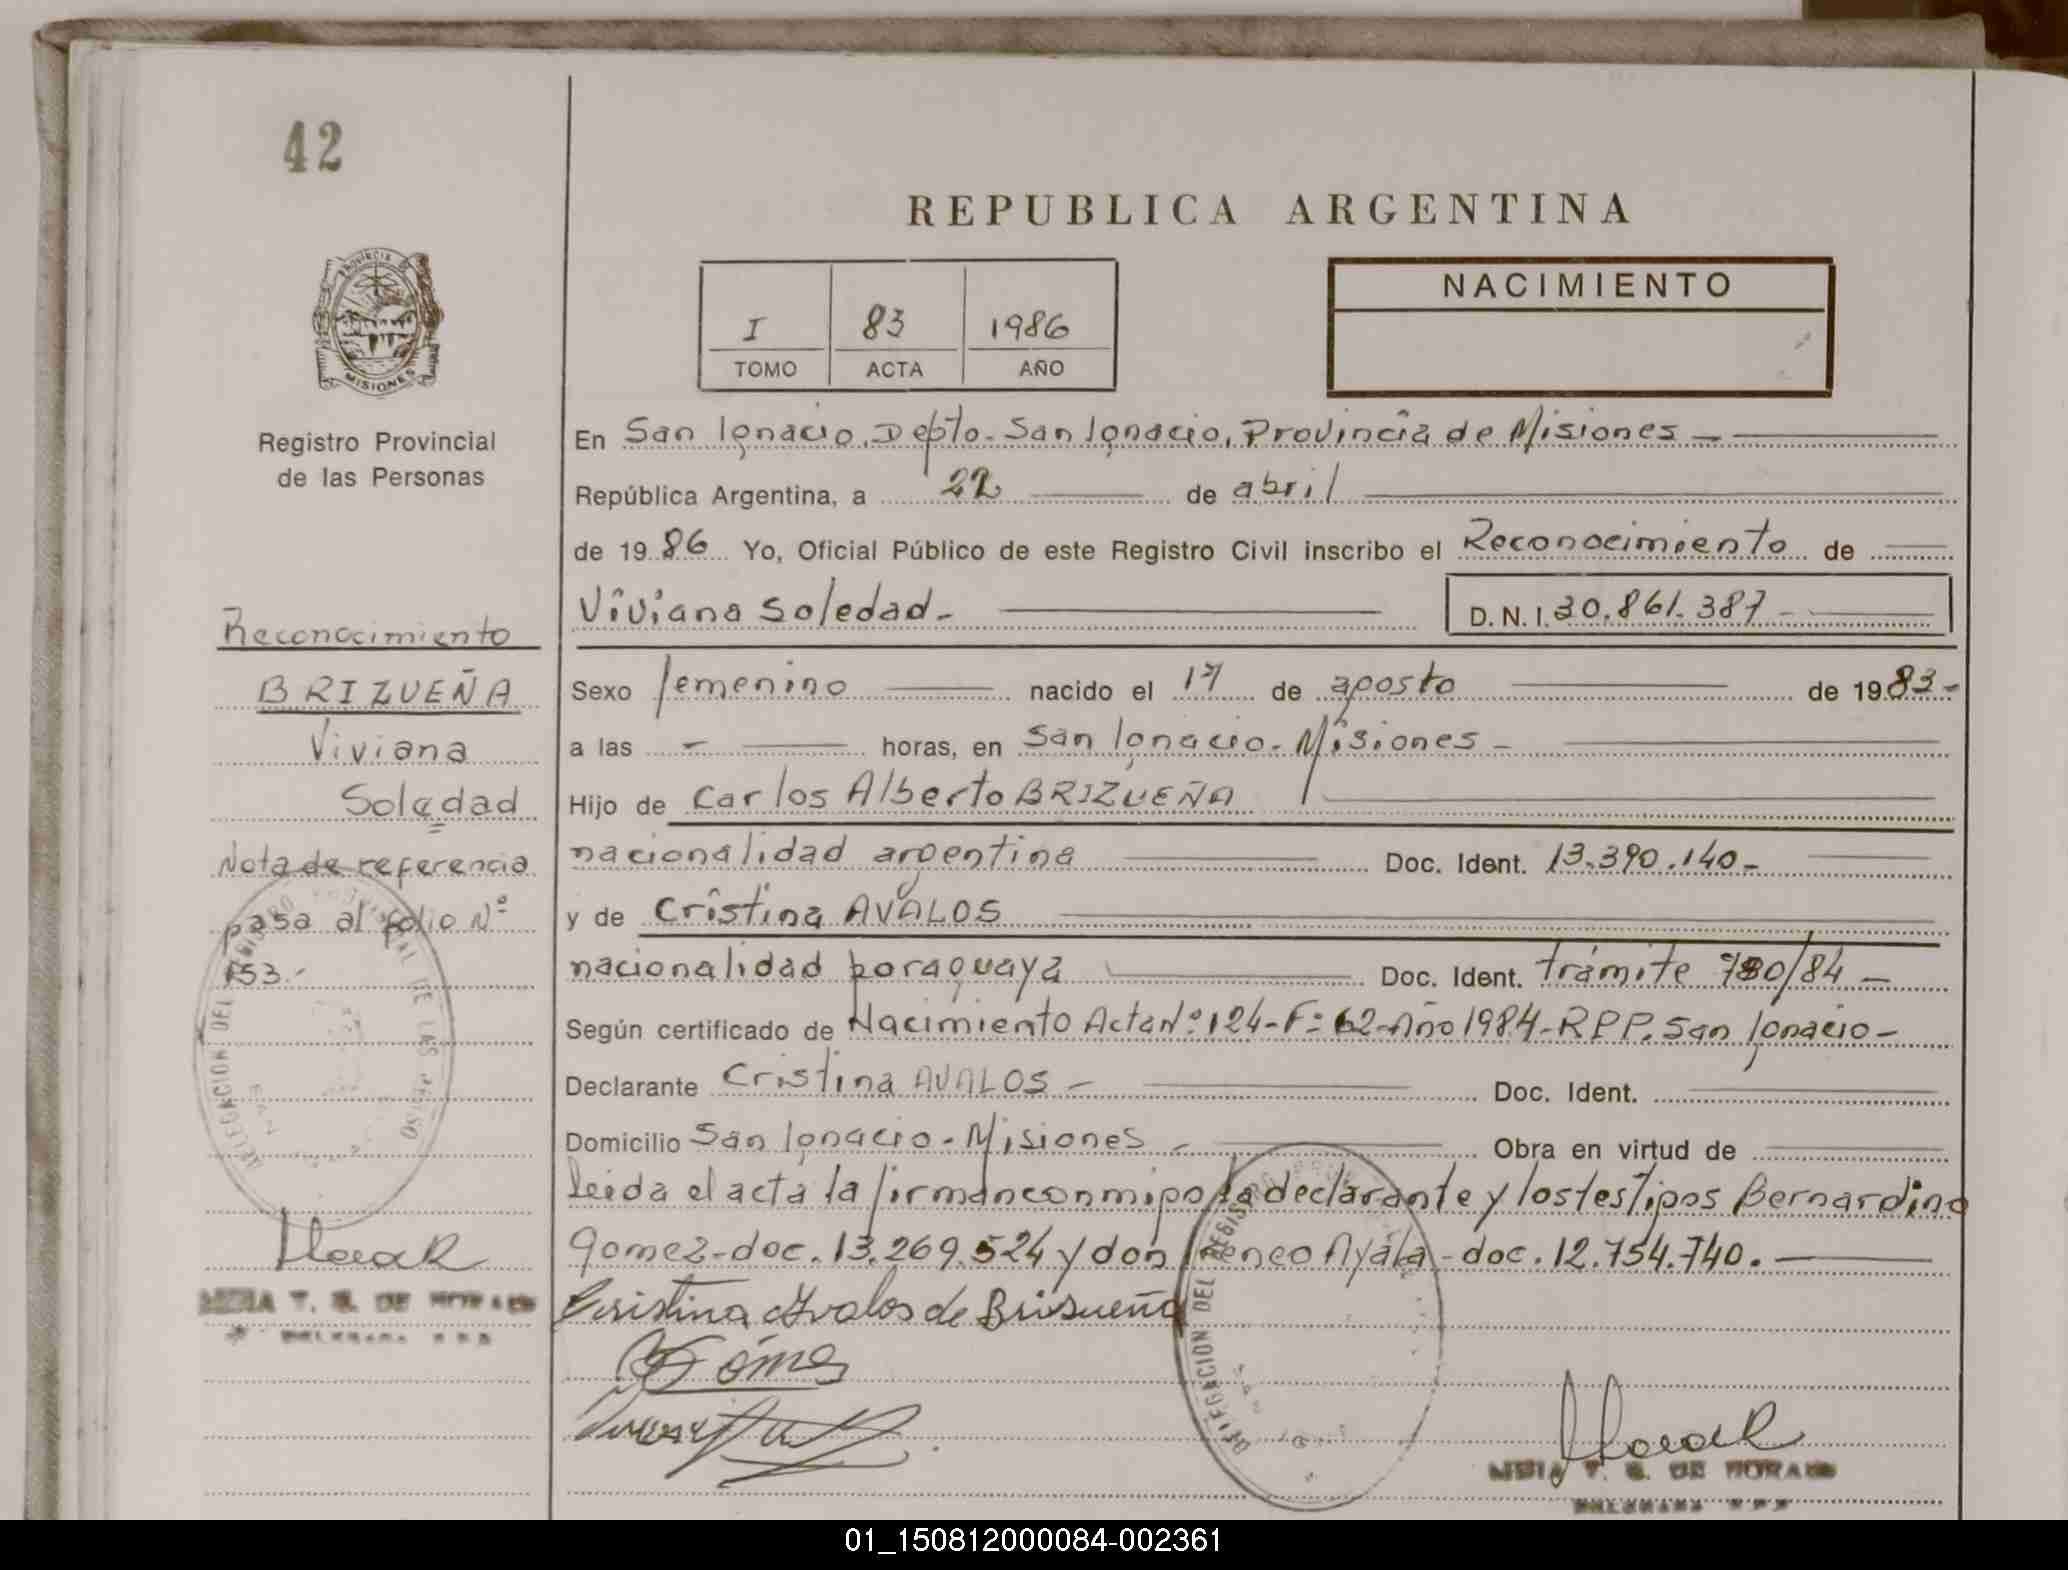 42
REPUBLICA ARGENTINA
PROVINCIA DE
MISIONES
Registro Provincial
de las Personas
I 83 1986
TOMO ACTA AÑO
NACIMIENTO
En San Ignacio, Depto. San Ignacio, Provincia de Misiones
República Argentina, a 22 de abril
de 1986 Yo, Oficial Público de este Registro Civil inscribo el Reconocimiento de
Viviana Soledad.- D. N. I. 30.861.387-
Reconocimiento
BRIZUEÑA
Viviana
Soledad
Nota de referencia
pasa al folio Nº
153.-
Sexo femenino nacido el 17 de agosto de 1983-
a las - horas, en San Ignacio - Misiones -
Hijo de Carlos Alberto BRIZUEÑA
nacionalidad argentina Doc. Ident. 13.390.140-
y de Cristina AVALOS
nacionalidad paraguaya Doc. Ident. trámite 780/84 -
Según certificado de Nacimiento Acta Nº 124-Fº 62-Año 1984-RPP. San Ignacio-
Declarante Cristina AVALOS - Doc. Ident.
Domicilio San Ignacio - Misiones - Obra en virtud de
leida el acta la firman conmigo la declarante y los testigos Bernardino
Gomez-doc. 13.269.524 y don Ayala - doc. 12.754.740.
Cristina Avalos de Brisueña
Gómez
DELEGACION DEL REGISTRO PROVINCIAL DE LAS
DELEGACION DEL REGISTRO
T. S. DE MORAIS
T. S. DE MORAIS
01_150812000084-002361